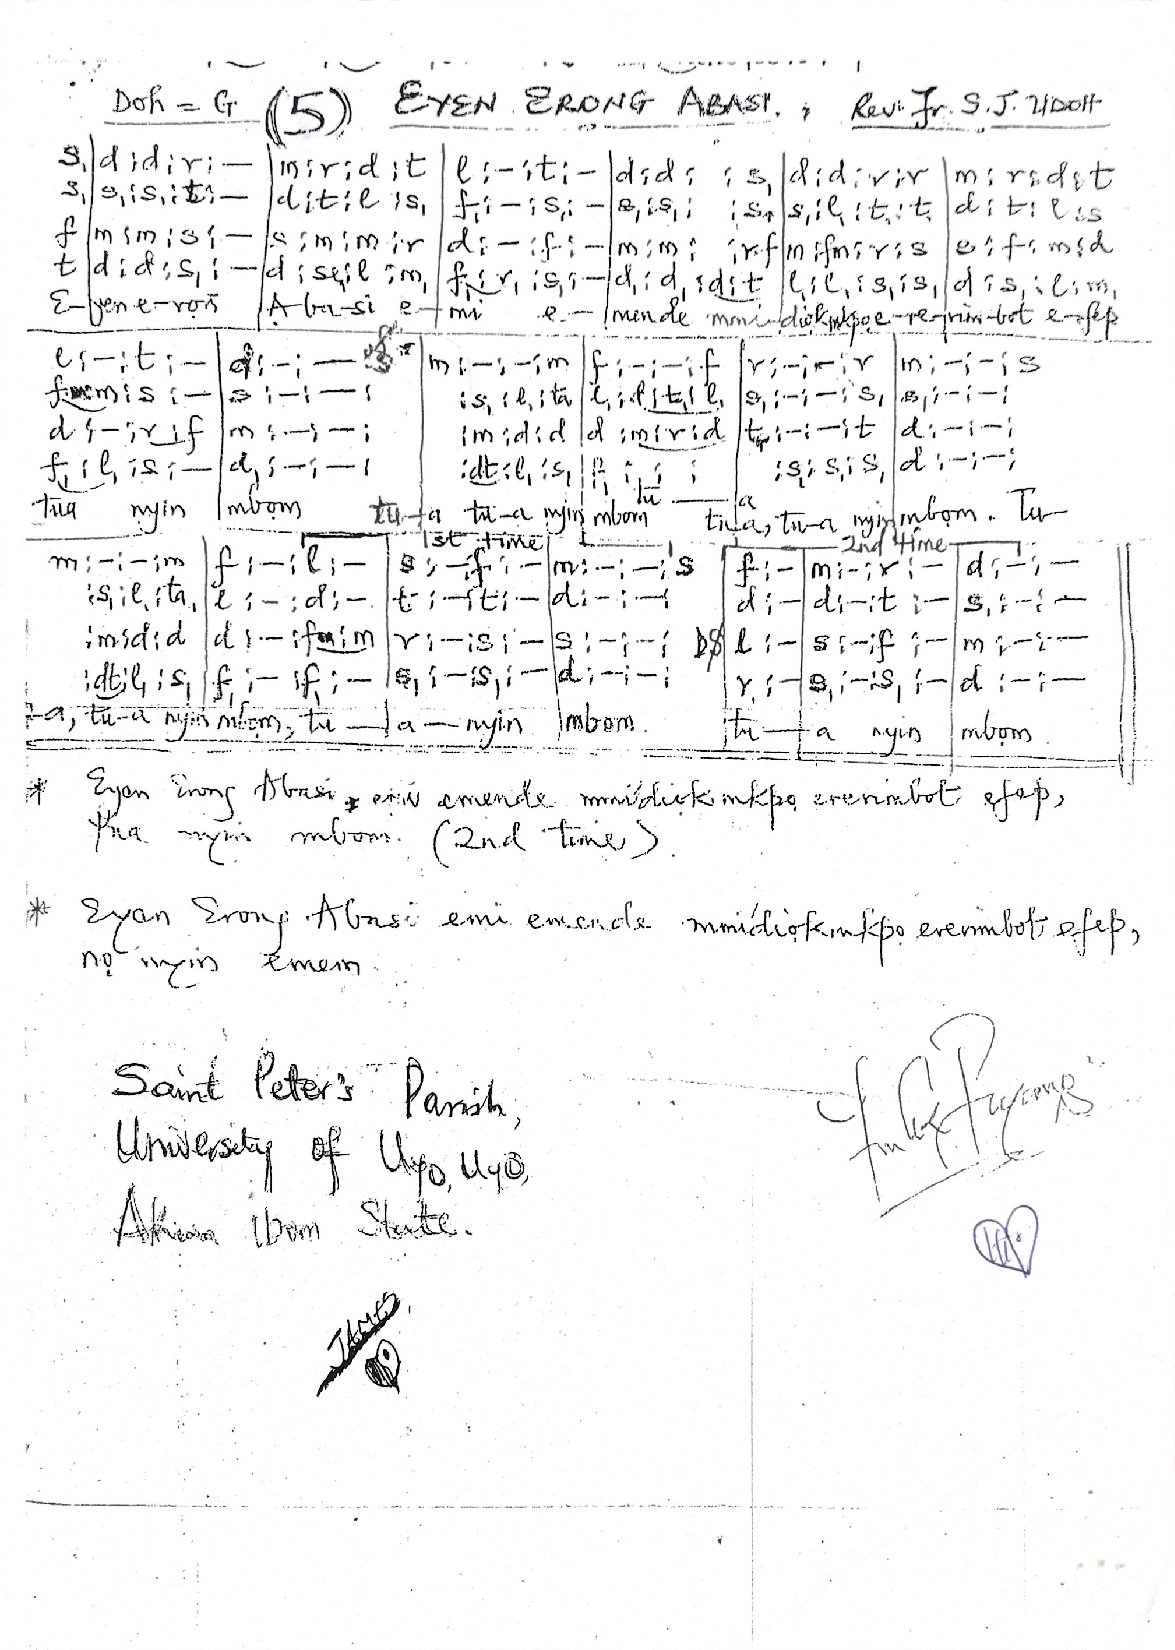 Doh = G (5) EYEN ERONG ABASI. ; Rev. Fr. S. J. UDOH
s,|d:d:r:—|m:r:d:t|l:—:t:—|d:d: :s,|d:d:r:r|m:r:d:t
s,|s,:s,:t,:—|d:t:l:s,|f,:—:s,:—|s,:s,: :s,|s,:l,:t,:t,|d:t:l:s
f|m:m:s:—|s:m:m:r|d:—:f:—|m:m: :rf|m:fm:r:s|s:f:m:d
t|d:d:s,:—|d:se,:l:m,|f,:r,:s,:—|d,:d,:d:t|l,:l,:s,:s,|d:s,:l,:m,
E-yen e-roñ A-ba-si e-mi e-mende mmi-diọkmkpọ e-re-rim-bot e-fep
l:—:t:—|d:—:—|m:—:—:m|f:—:—:f|r:—:—:r|m:—:—:s
f:m:s:—|s:—:—:|:s,:l,:ta|l,:l,:t,:l,|s,:—:—:s,|s,:—:—:
d:—:r:f|m:—:—:|:m:d:d|d:m:r:d|t,:—:—:t|d:—:—:
f,:l,:s:—|d,:—:—:|:dt:l,:s,|f,: : :|:s,:s,:s,|d:—:—:
tua nyin mbọm tu-a tu-a nyin mbọm tu—a tu-a, tu-a nyin mbọm. Tu-
1st time 2nd time
m:—:—:m|f:—:l:—|s:—:f:—|m:—:—:s|f:—|m:—:r:—|d:—:—
:s,:l,:ta,|l:—:d:—|t:—:t:—|d:—:—:|d:—|d:—:t:—|s,:—:—
:m:d:d|d:—:fm:m|r:—:s:—|s:—:—: DS|l:—|s:—:f:—|m:—:—
:dt:l,:s,|f,:—:f,:—|s,:—:s,:—|d:—:—:|r,:—|s,:—:s,:—|d:—:—
-a, tu-a nyin mbọm, tu—a—nyin mbọm. tu—a nyin mbọm.
* Eyen Erong Abasi, emi emende mmidiọkmkpọ ererimbot efep,
tua nyin mbom. (2nd time).
* Eyen Erong Abasi emi emende mmidiọkmkpọ ererimbot efep,
nọ nyin emem.
Saint Peter's Parish,
University of Uyo, Uyo,
Akwa Ibom State.
JAMES